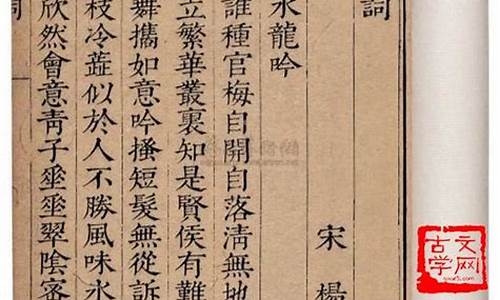 詞
宋 楊
水龍吟
誰種官梅自開自落淸無地
立繁華叢裏知是賢侯有難
舞攜如意吟搔短髮無從訴
枝冷蕋似於人不勝風味水
欣然會意靑子埀埀翠陰宻
詞
古文
学网